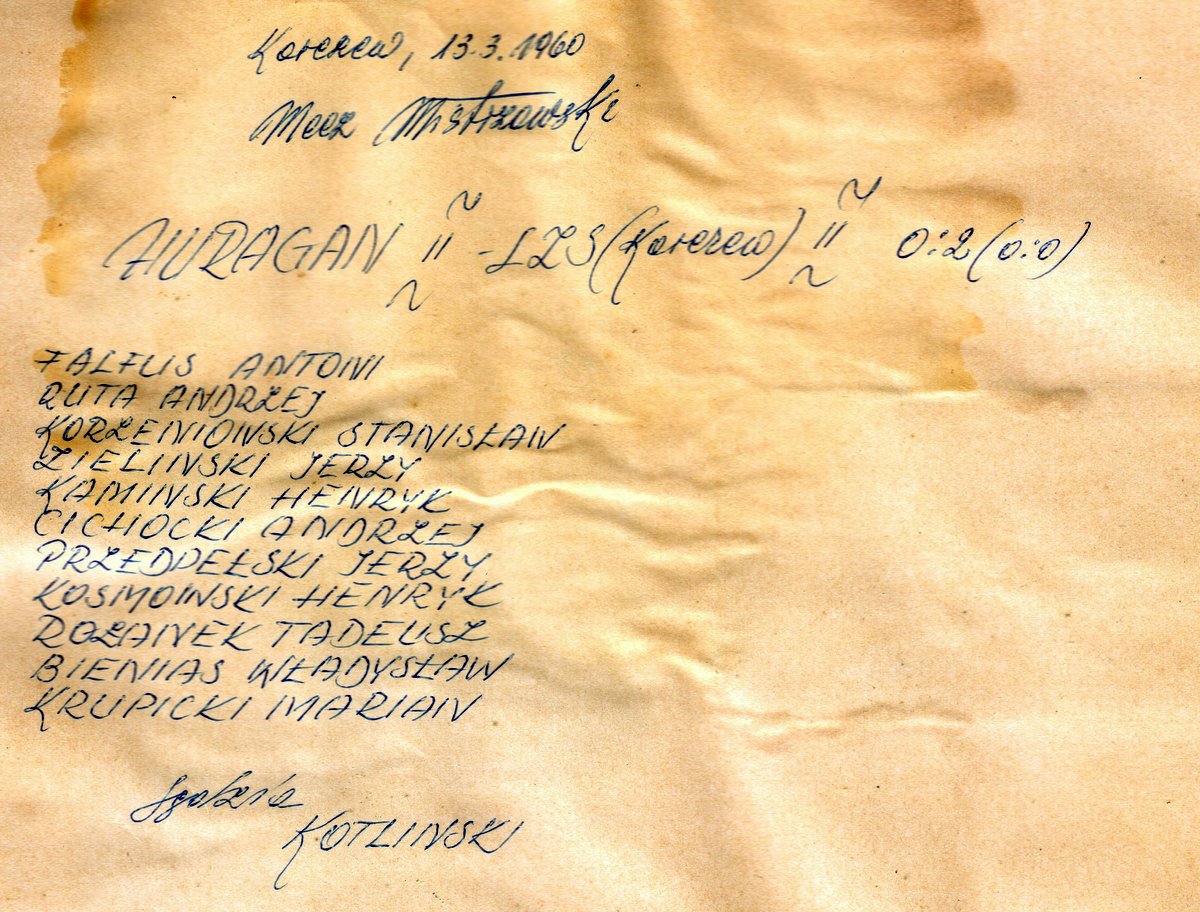 Korczew, 13.3.1960
Mecz Mistrzowski
HURAGAN II - LZS (Korczew) II 0:2 (0:0)
FALFUS ANTONI
RUTA ANDRZEJ
KORZENIOWSKI STANISŁAW
ZIELINSKI JERZY
KAMINSKI HENRYK
CICHOCKI ANDRZEJ
PRZEDPEŁSKI JERZY
KOSMOINSKI HENRYK
ROZANEK TADEUSZ
BIENIAS WŁADYSŁAW
KRUPICKI MARIAN
Sędzia
KOTLINSKI